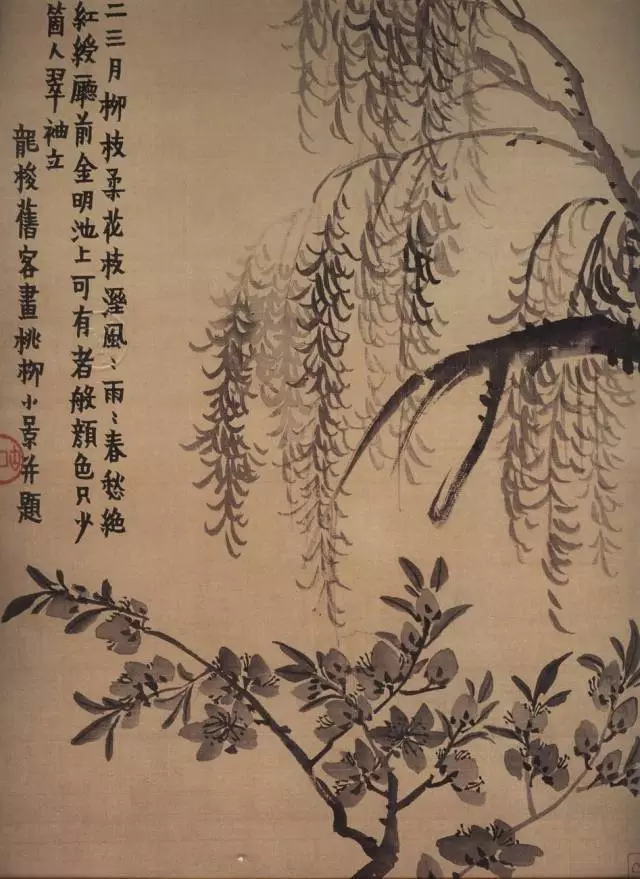 二三月柳枝柔花枝溼風〻雨〻春愁絶
紅綬廳前金明池上可有者般顔色只少
箇人翠袖立
龍梭舊客畫桃柳小景并題